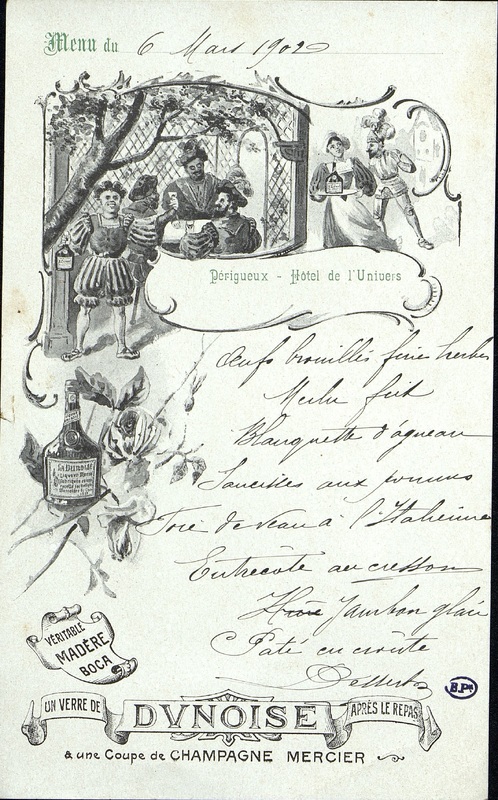 Menu du 6 Mars 1902
Périgueux - Hôtel de l'Univers
Œufs brouillés fines herbes
Merlu frit
Blanquette d'agneau
Saucisses aux pommes
Foie de veau à l'Italienne
Entrecôte au cresson
Jambon glacé
Pâté en croûte
Desserts
LA DUNOISE
VÉRITABLE
MADÈRE
BOCA
B.P.
UN VERRE DE DVNOISE APRÈS LE REPAS
& une Coupe de CHAMPAGNE MERCIER